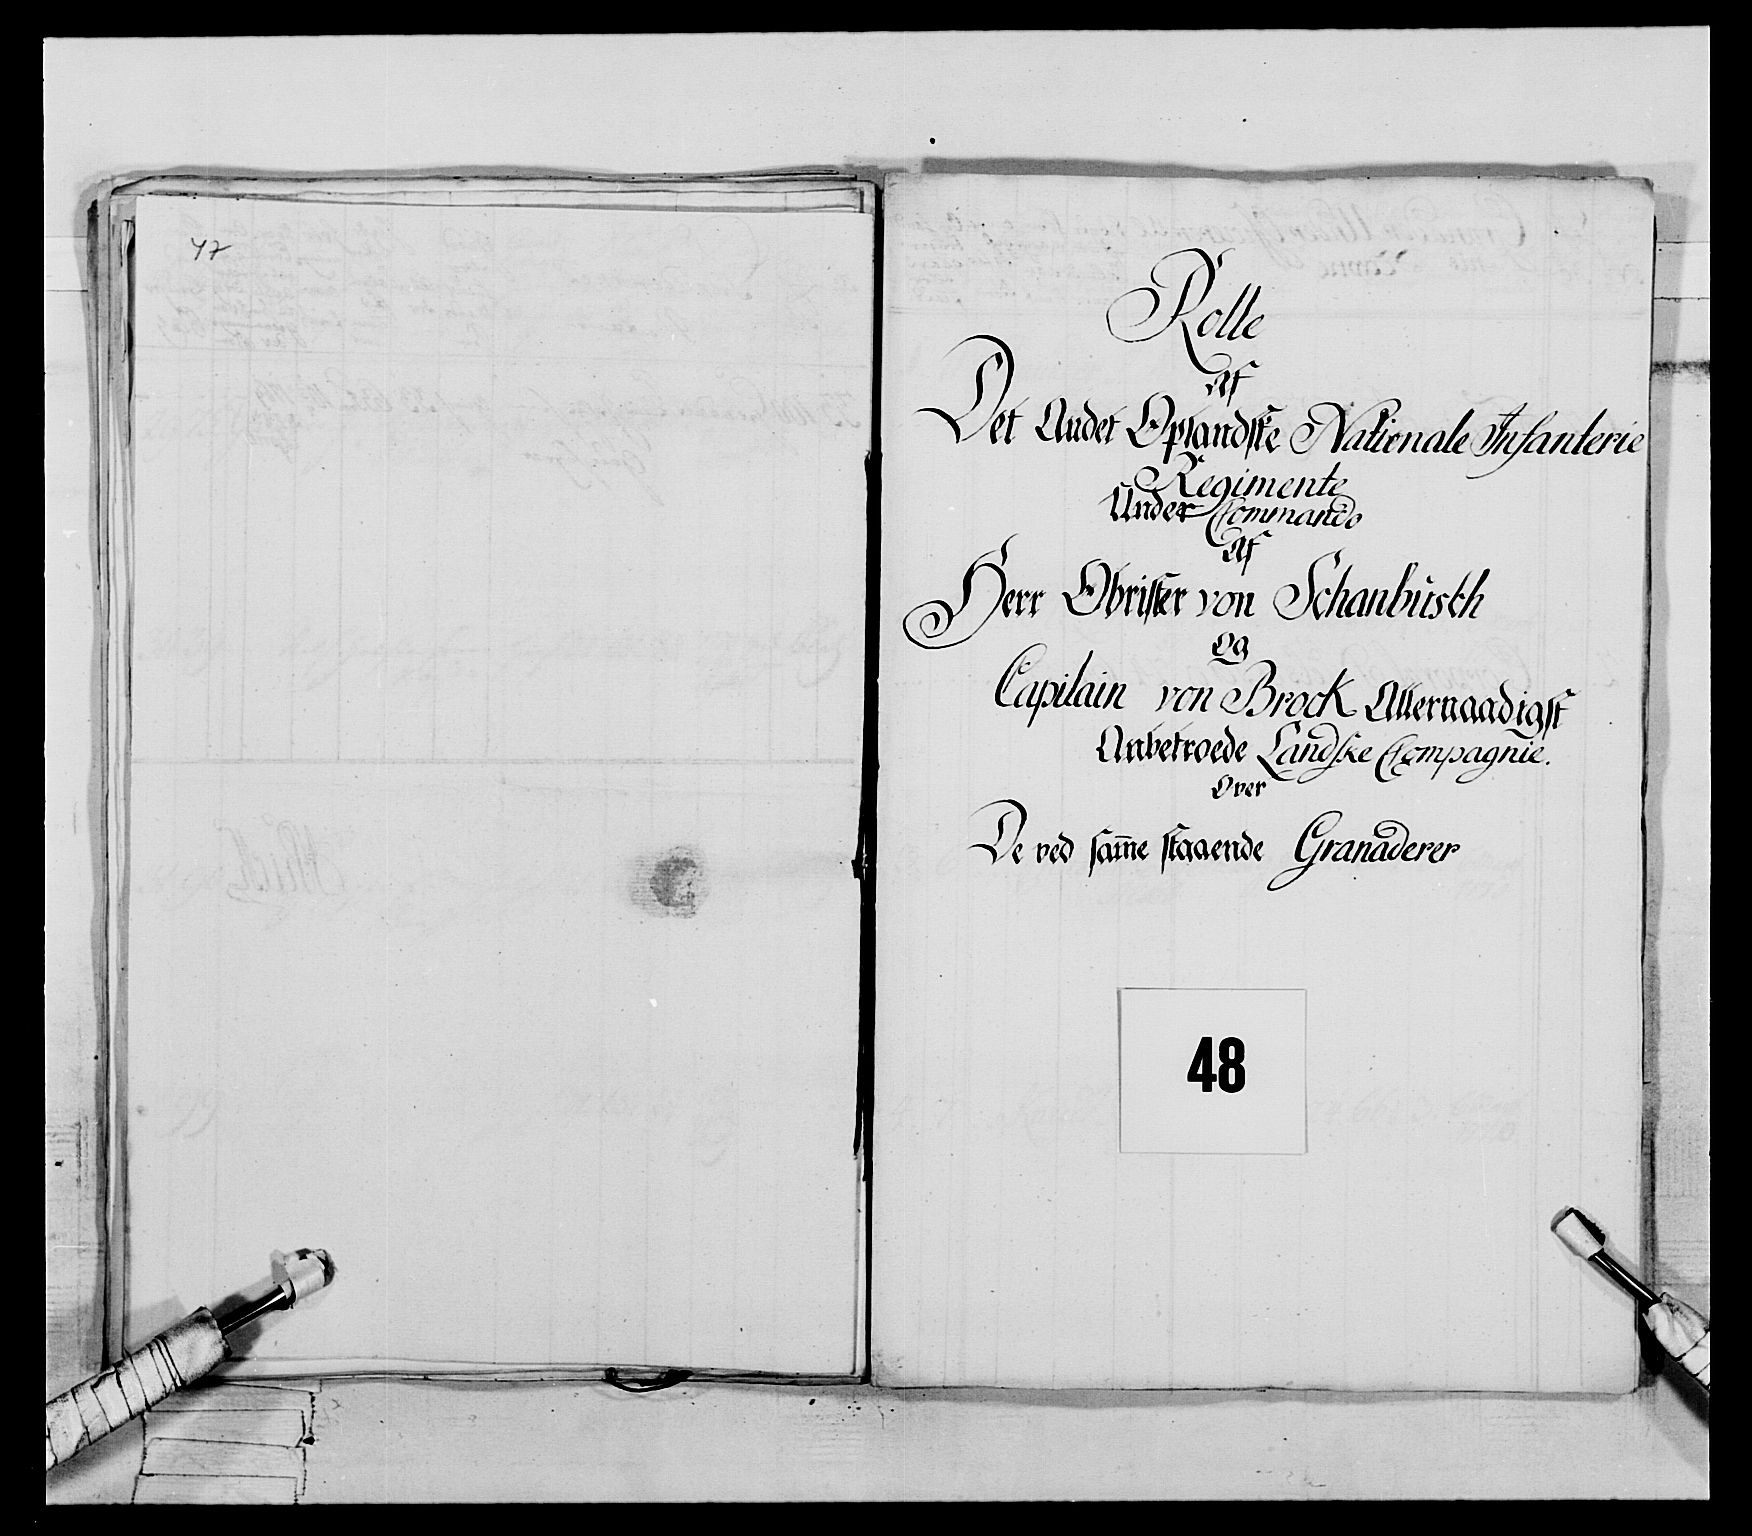 47
Rolle
Af
Det Andet Oplandske Nationale Infanterie
Regimente
Under Commando
Af
Herr Obrister von Schanbusch
Og
Capitain von Brock Allernaadigst
Anbetroede Landske Compagnie.
Over
De ved sam̄e staaende Granaderer
48